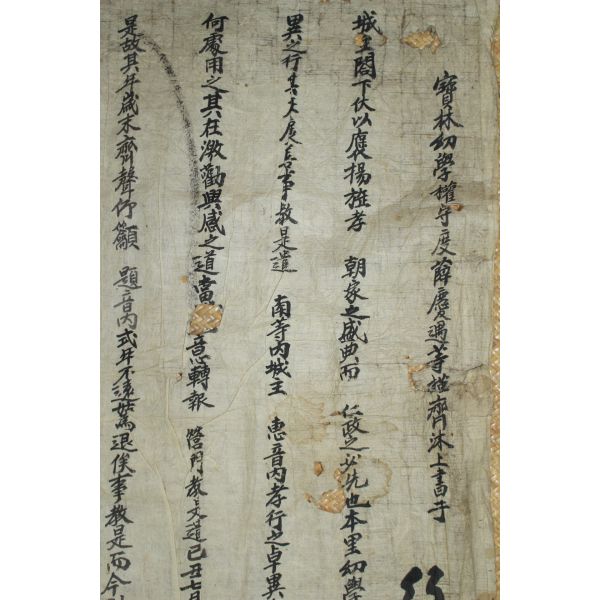 寶林幼學權守度薛慶遇等謹齊沐上書于
城主閤下伏以褒揚旌孝 朝家之盛典而 仁政之必先也本里幼學
異之行其大展善事教是遣 南等內城主 惠音內孝行之卓異
何處用之其在激勸興感之道當 意轉報 營門教文道己丑七月
是故其年歲末齊聲仰籲 題音內式年不遠姑退俟事教是而今